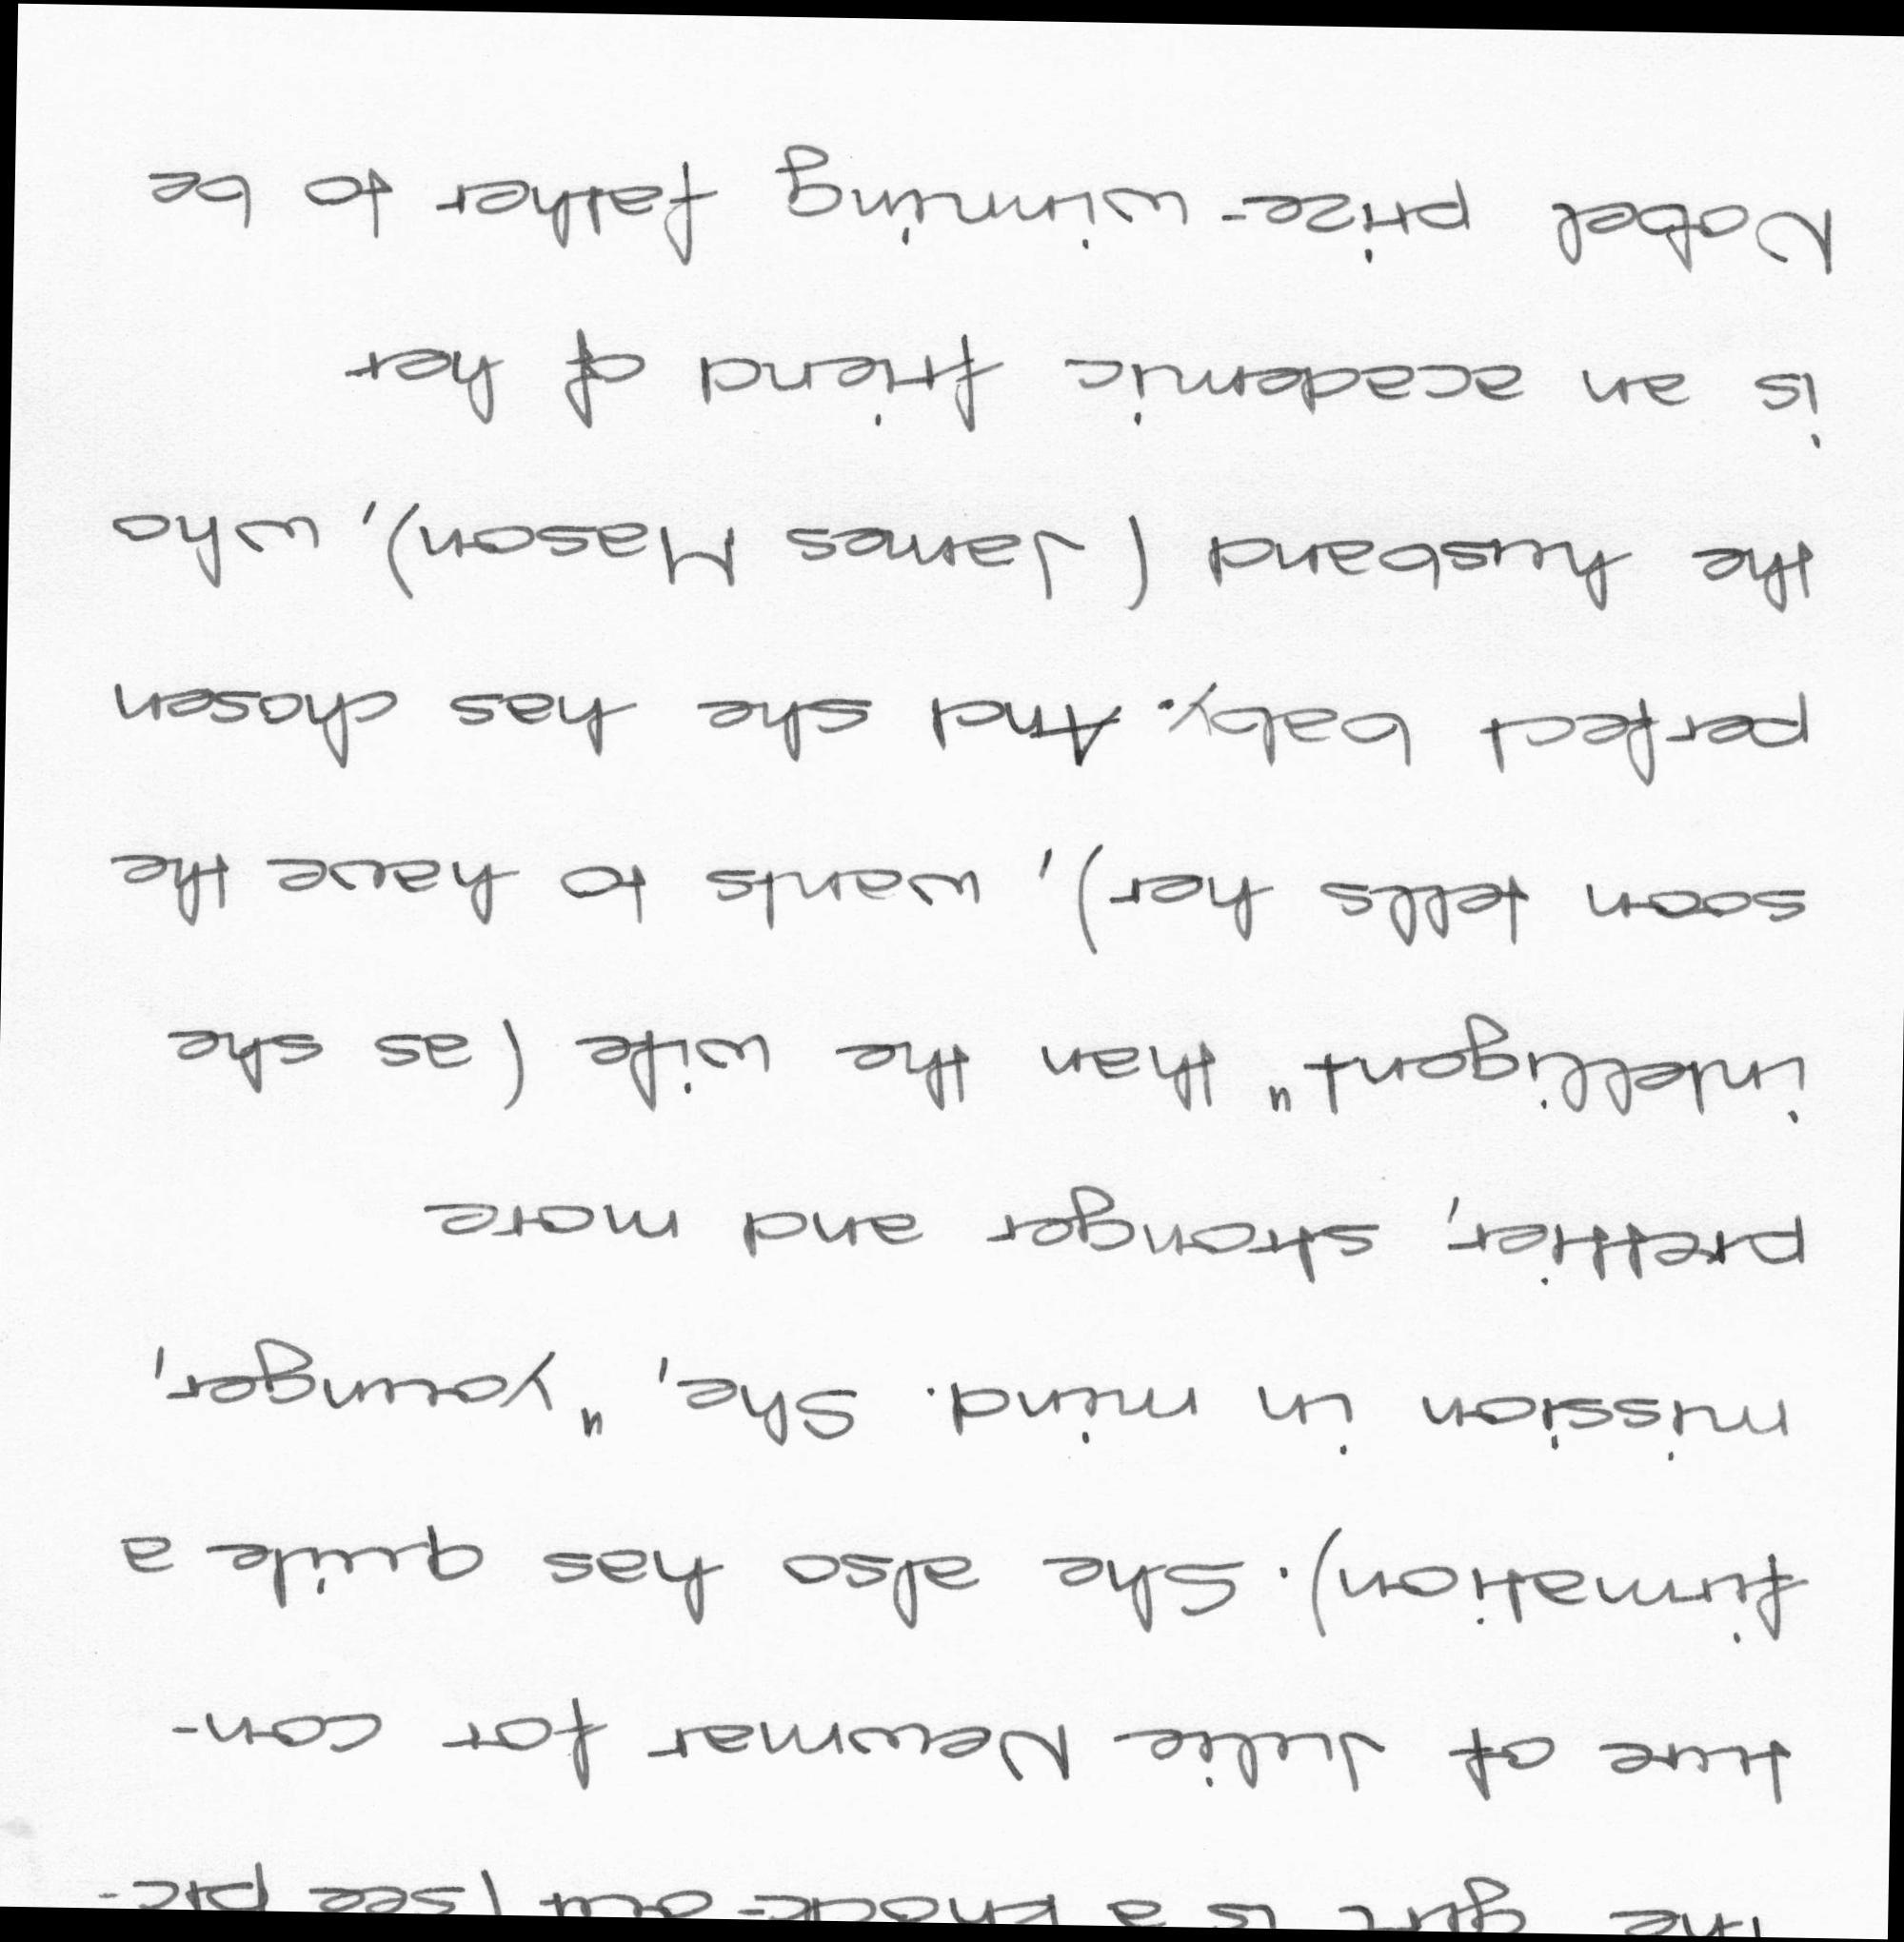 The girl is a knock-out (see pic-
ture of Julie Newmar for con-
firmation). She also has quite a
mission in mind. She, "younger,
prettier, stronger and more
intelligent" than the wife (as she
soon tells her), wants to have the
perfect baby. And she has chosen
the husband (James Mason), who
is an academic friend of her
Nobel prize-winning father to be